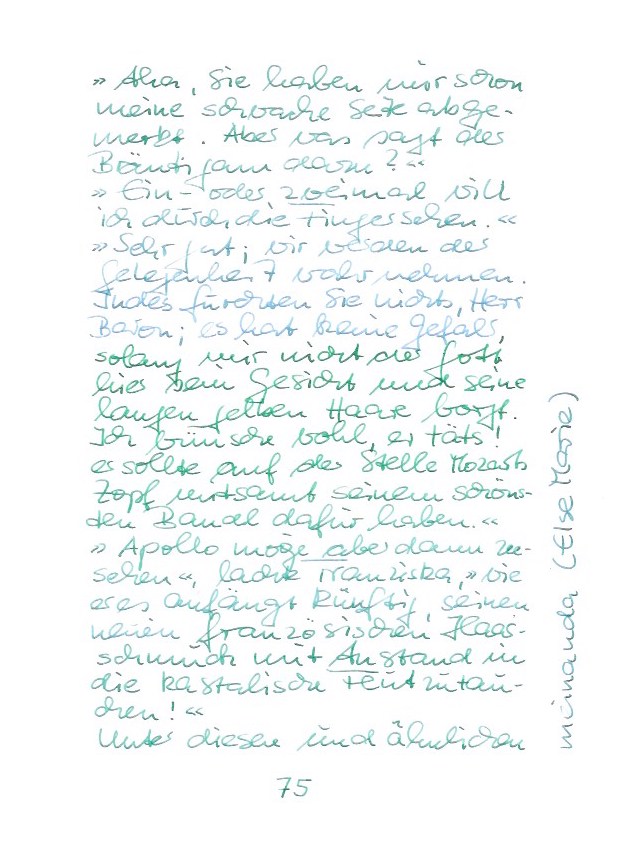 » Aha, Sie haben mir schon
meine schwache Seite abge-
merkt. Aber was sagt der
Bräutigam davon?“
» Ein- oder zweimal will
ich durch die Finger sehen.“
» Sehr gut; wir werden der
Gelegenheit wahrnehmen.
Indes fürchten Sie nichts, Herr
Baron; es hat keine Gefahr,
solang mir nicht der Gott
hier sein Gesicht und seine
langen gelben Haare borgt.
Ich wünsche wohl, er täts!
er sollte auf der Stelle Mozarts
Zopf mitsamt seinem schöns-
ten Bandl dafür haben.“
» Apollo möge aber dann zu-
sehen“, lachte Franziska, »wie
er es anfängt künftig, seinen
neuen französischen Haar-
schmuck mit Anstand in
die kastalische Flut zu tau-
chen!“
Unter diesen und ähnlichen
75
meinanda (Else Marie)